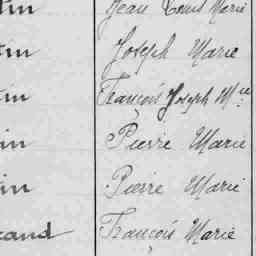 tin Jean Louis Marie
tin Joseph Marie
tin François Joseph M.ie
in Pierre Marie
in Pierre Marie
rand François Marie